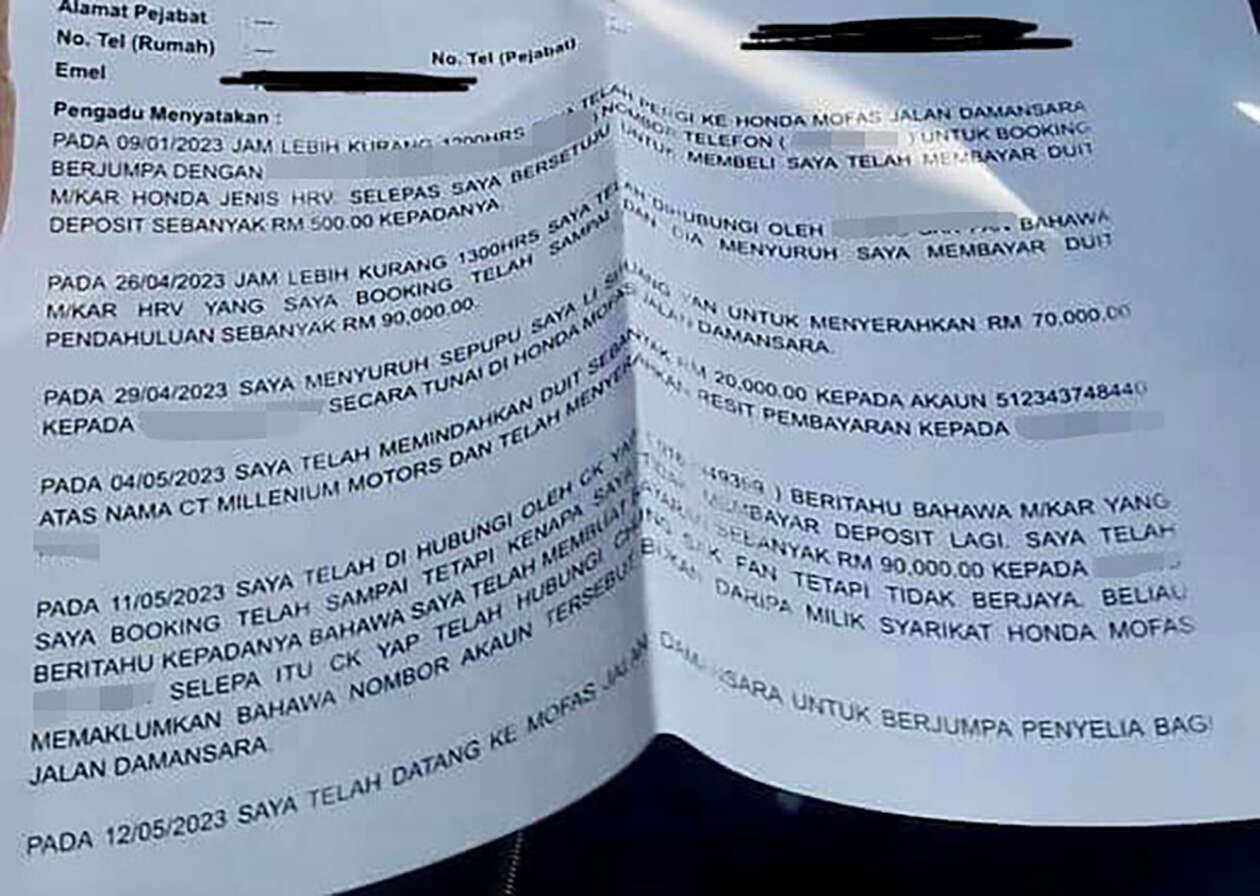 Alamat Pejabat : __
No. Tel (Rumah) : __ No. Tel (Pejabat) : __
Emel
Pengadu Menyatakan :
PADA 09/01/2023 JAM LEBIH KURANG 1200HRS TELAH PERGI KE HONDA MOFAS JALAN DAMANSARA
BERJUMPA DENGAN ) NOMBOR TELEFON ( ) UNTUK BOOKING
M/KAR HONDA JENIS HRV. SELEPAS SAYA BERSETUJU UNTUK MEMBELI SAYA TELAH MEMBAYAR DUIT
DEPOSIT SEBANYAK RM 500.00 KEPADANYA
PADA 26/04/2023 JAM LEBIH KURANG 1300HRS SAYA TELAH DIHUBUNGI OLEH BAHAWA
M/KAR HRV YANG SAYA BOOKING TELAH SAMPAI DAN DIA MENYURUH SAYA MEMBAYAR DUIT
PENDAHULUAN SEBANYAK RM 90,000.00.
PADA 29/04/2023 SAYA MENYURUH SEPUPU SAYA LI YAN UNTUK MENYERAHKAN RM 70,000.00
KEPADA SECARA TUNAI DI HONDA MOFAS JALAN DAMANSARA.
PADA 04/05/2023 SAYA TELAH MEMINDAHKAN DUIT SEBANYAK RM 20,000.00 KEPADA AKAUN 512343748440
ATAS NAMA CT MILLENIUM MOTORS DAN TELAH MENYERAHKAN RESIT PEMBAYARAN KEPADA
PADA 11/05/2023 SAYA TELAH DI HUBUNGI OLEH CK ) BERITAHU BAHAWA M/KAR YANG
SAYA BOOKING TELAH SAMPAI TETAPI KENAPA SAYA MEMBAYAR DEPOSIT LAGI. SAYA TELAH
BERITAHU KEPADANYA BAHAWA SAYA TELAH MEMBUAT SEBANYAK RM 90,000.00 KEPADA
SELEPA ITU CK YAP TELAH HUBUNGI FAN TETAPI TIDAK BERJAYA. BELIAU
MEMAKLUMKAN BAHAWA NOMBOR AKAUN TERSEBUT BUKAN DARIPA MILIK SYARIKAT HONDA MOFAS
JALAN DAMANSARA.
PADA 12/05/2023 SAYA TELAH DATANG KE MOFAS JALAN DAMANSARA UNTUK BERJUMPA PENYELIA BAGI